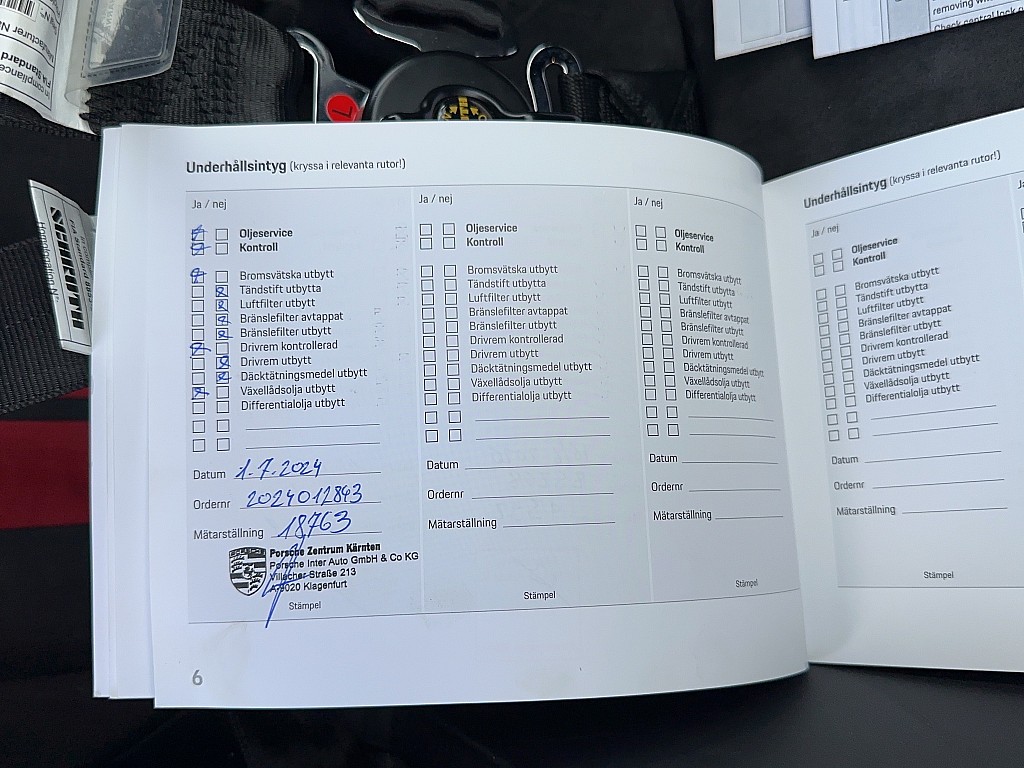 In compliance
FIA Standard
Manufacturer Na
removing w
Check central lock
SCHROTH
Underhållsintyg (kryssa i relevanta rutor!)
Ja / nej
Oljeservice
Kontroll
Bromsvätska utbytt
Tändstift utbytta
Luftfilter utbytt
Bränslefilter avtappat
Bränslefilter utbytt
Drivrem kontrollerad
Drivrem utbytt
Däcktätningsmedel utbytt
Växellådsolja utbytt
Differentialolja utbytt
Datum 1.7.2024
Ordernr 2024012843
Mätarställning 18763
Porsche Zentrum Kärnten
Porsche Inter Auto GmbH & Co KG
Villacher Straße 213
A-9020 Klagenfurt
Stämpel
Ja / nej
Oljeservice
Kontroll
Bromsvätska utbytt
Tändstift utbytta
Luftfilter utbytt
Bränslefilter avtappat
Bränslefilter utbytt
Drivrem kontrollerad
Drivrem utbytt
Däcktätningsmedel utbytt
Växellådsolja utbytt
Differentialolja utbytt
Datum
Ordernr
Mätarställning
Stämpel
Ja / nej
Oljeservice
Kontroll
Bromsvätska utbytt
Tändstift utbytta
Luftfilter utbytt
Bränslefilter avtappat
Bränslefilter utbytt
Drivrem kontrollerad
Drivrem utbytt
Däcktätningsmedel utbytt
Växellådsolja utbytt
Differentialolja utbytt
Datum
Ordernr
Mätarställning
Stämpel
6
Underhållsintyg (kryssa i relevanta rutor!)
Ja / nej
Oljeservice
Kontroll
Bromsvätska utbytt
Tändstift utbytta
Luftfilter utbytt
Bränslefilter avtappat
Bränslefilter utbytt
Drivrem kontrollerad
Drivrem utbytt
Däcktätningsmedel utbytt
Växellådsolja utbytt
Differentialolja utbytt
Datum
Ordernr
Mätarställning
Stämpel